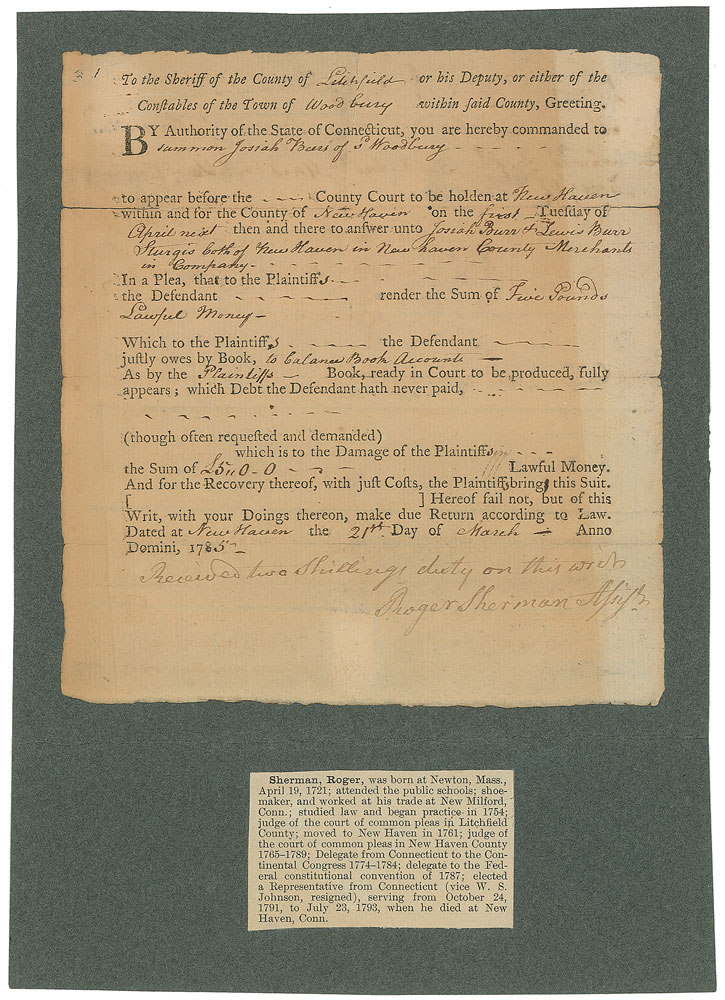 1
To the Sheriff of the County of Litchfield or his Deputy, or either of the
Conſtables of the Town of Woodbury within ſaid County, Greeting.
BY Authority of the State of Connecticut, you are hereby commanded to
summon Josiah Beers of sd Woodbury - - - - -
to appear before the - - - County Court to be holden at New Haven
within and for the County of New Haven on the first Tueſday of
April next then and there to anſwer unto Josiah Burr & Lewis Burr
Sturgis both of New Haven in New haven County Merchants
in Company -
In a Plea, that to the Plaintiffs
the Defendant render the Sum of Five Pounds
Lawful Money -
Which to the Plaintiffs the Defendant
juſtly owes by Book, to balance Book Accounts -
As by the Plaintiffs Book, ready in Court to be produced, fully
appears; which Debt the Defendant hath never paid,
(though often requeſted and demanded)
which is to the Damage of the Plaintiffs
the Sum of £5,,0-0 Lawful Money.
And for the Recovery thereof, with juſt Coſts, the Plaintiffs bring this Suit.
[ ] Hereof fail not, but of this
Writ, with your Doings thereon, make due Return according to Law.
Dated at New Haven the 21st Day of March Anno
Domini, 1785
Received two Shillings duty on this writ
Roger Sherman Assist
Sherman, Roger, was born at Newton, Mass.,
April 19, 1721; attended the public schools; shoe-
maker, and worked at his trade at New Milford,
Conn.; studied law and began practice in 1754;
judge of the court of common pleas in Litchfield
County; moved to New Haven in 1761; judge of
the court of common pleas in New Haven County
1765-1789; Delegate from Connecticut to the Con-
tinental Congress 1774-1784; delegate to the Fed-
eral constitutional convention of 1787; elected
a Representative from Connecticut (vice W. S.
Johnson, resigned), serving from October 24,
1791, to July 23, 1793, when he died at New
Haven, Conn.